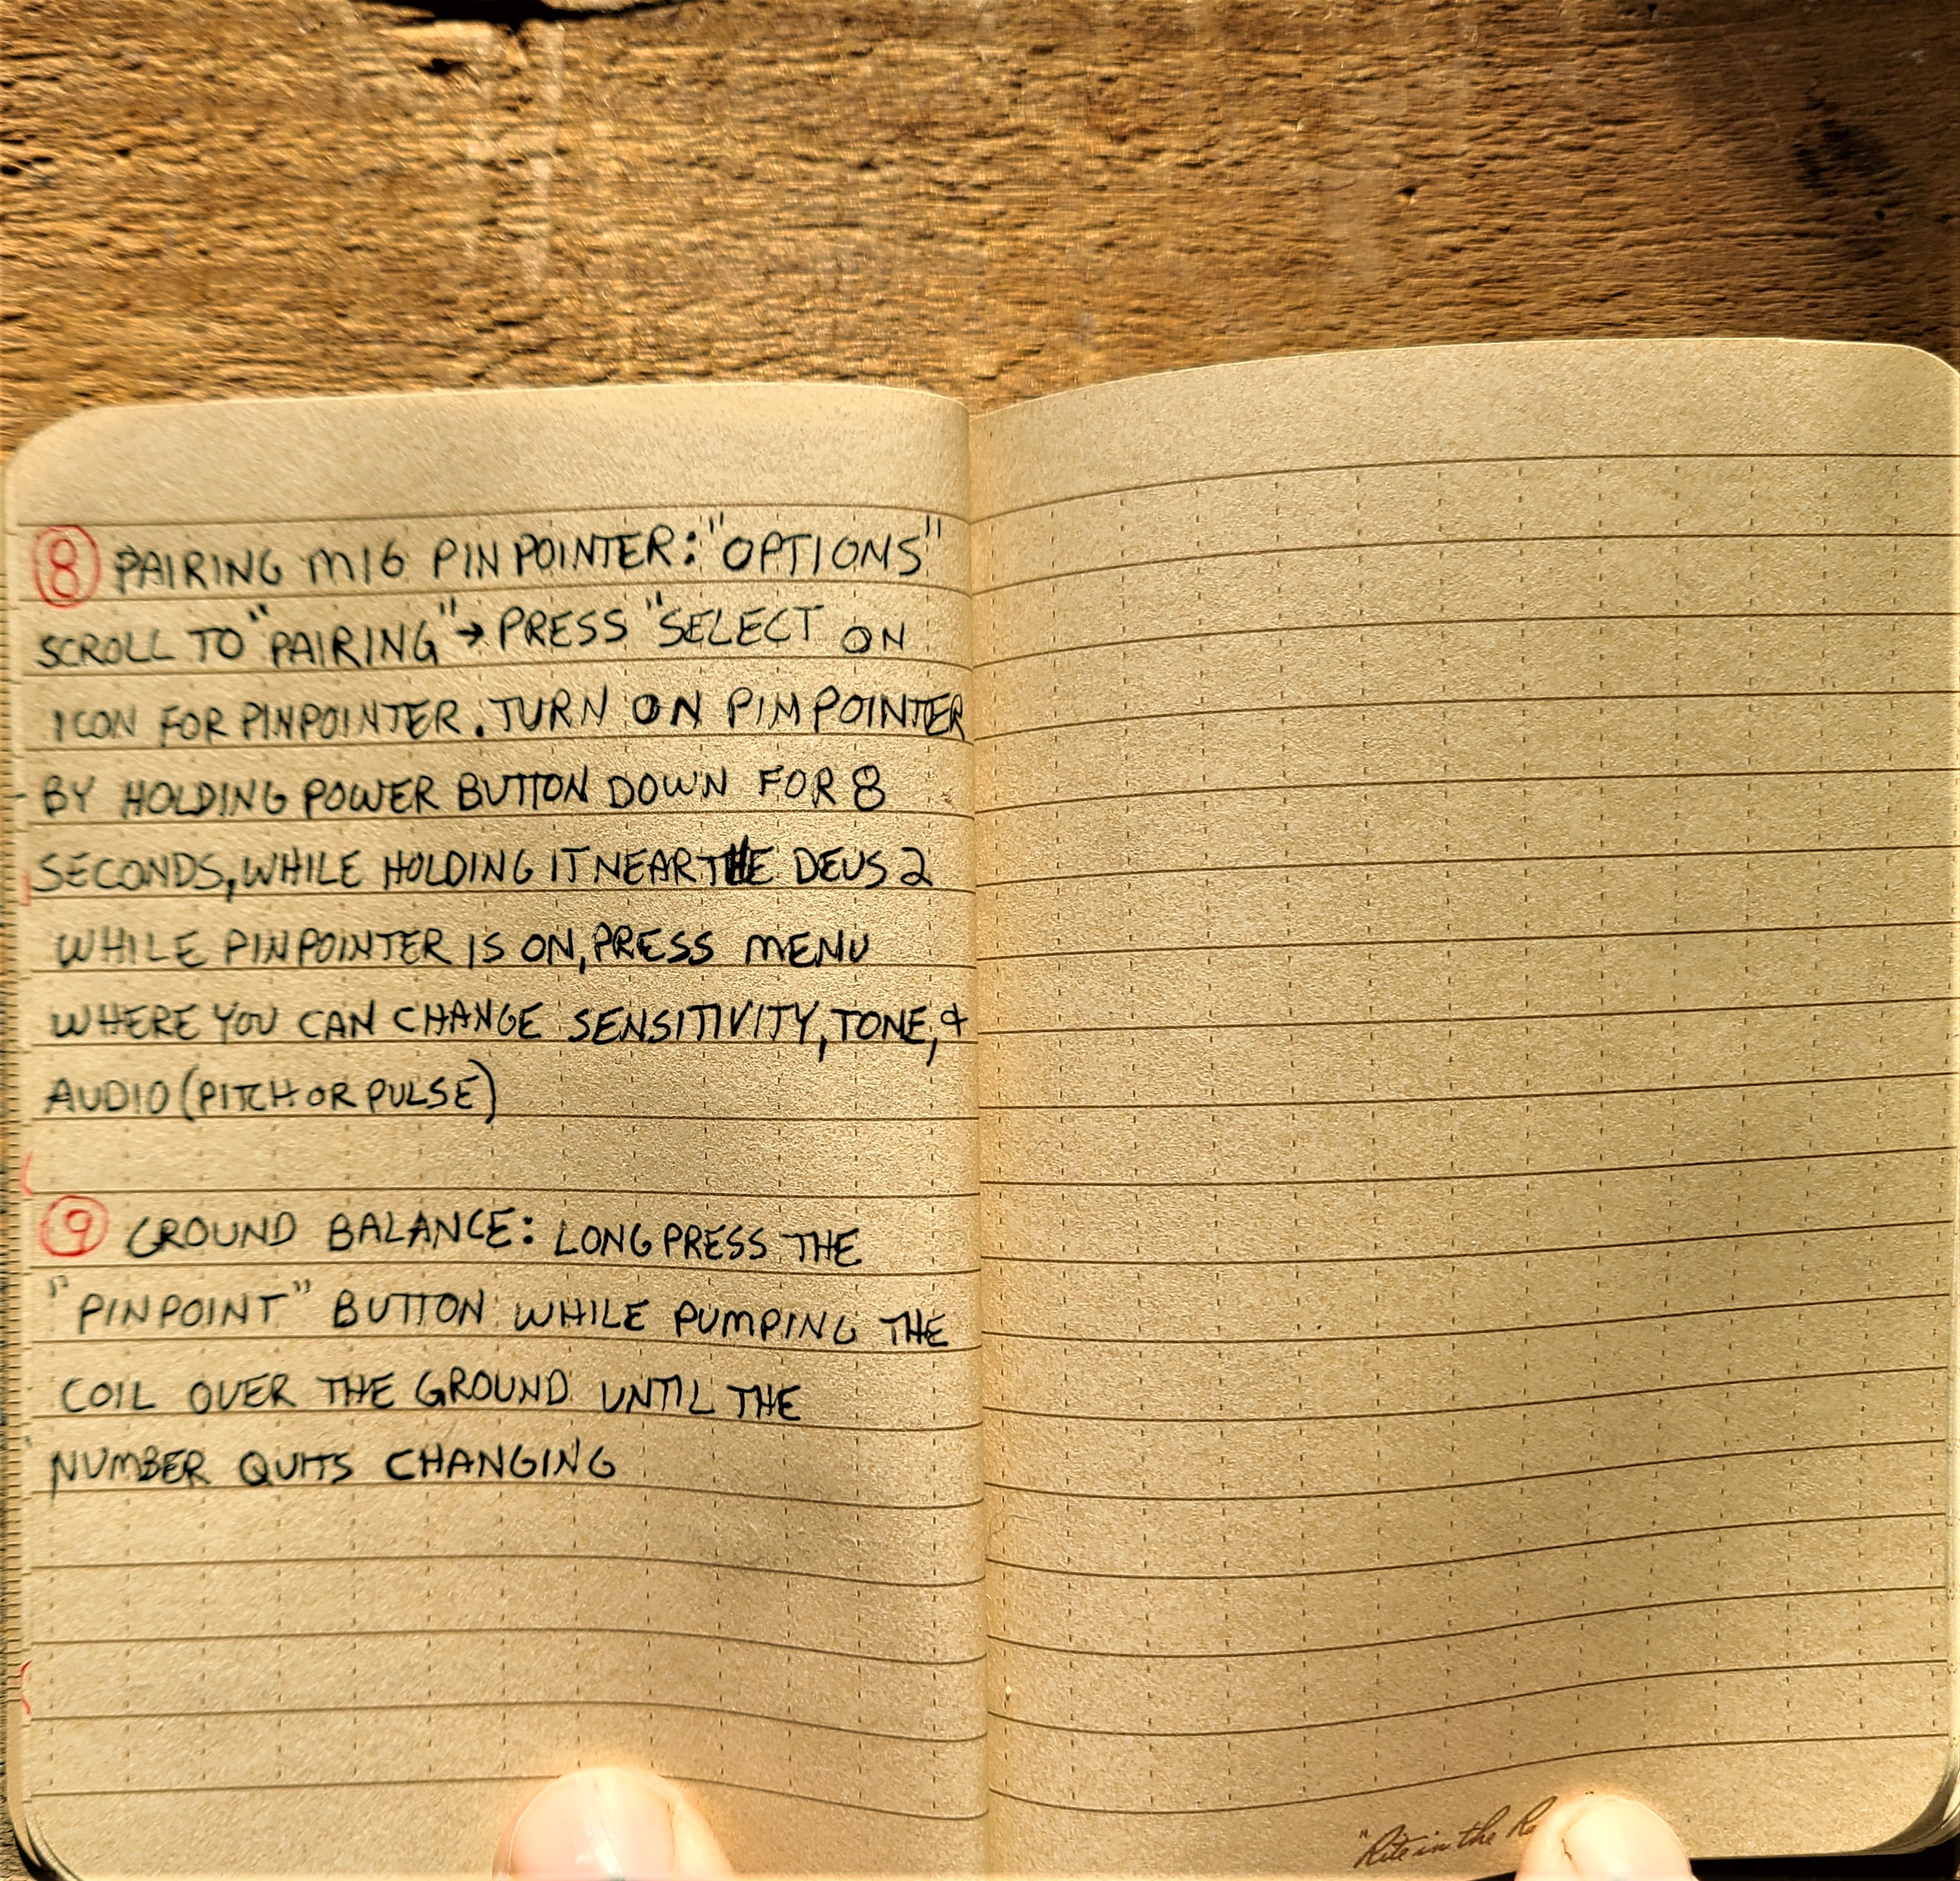 8 PAIRING MI6 PINPOINTER: "OPTIONS"
SCROLL TO "PAIRING" → PRESS "SELECT ON
ICON FOR PINPOINTER. TURN ON PIMPOINTER
BY HOLDING POWER BUTTON DOWN FOR 8
SECONDS, WHILE HOLDING IT NEAR THE DEUS 2
WHILE PINPOINTER IS ON, PRESS MENU
WHERE YOU CAN CHANGE SENSITIVITY, TONE, &
AUDIO (PITCH OR PULSE)
9 GROUND BALANCE: LONG PRESS THE
"PINPOINT" BUTTON WHILE PUMPING THE
COIL OVER THE GROUND UNTIL THE
NUMBER QUITS CHANGING
"Rite in the